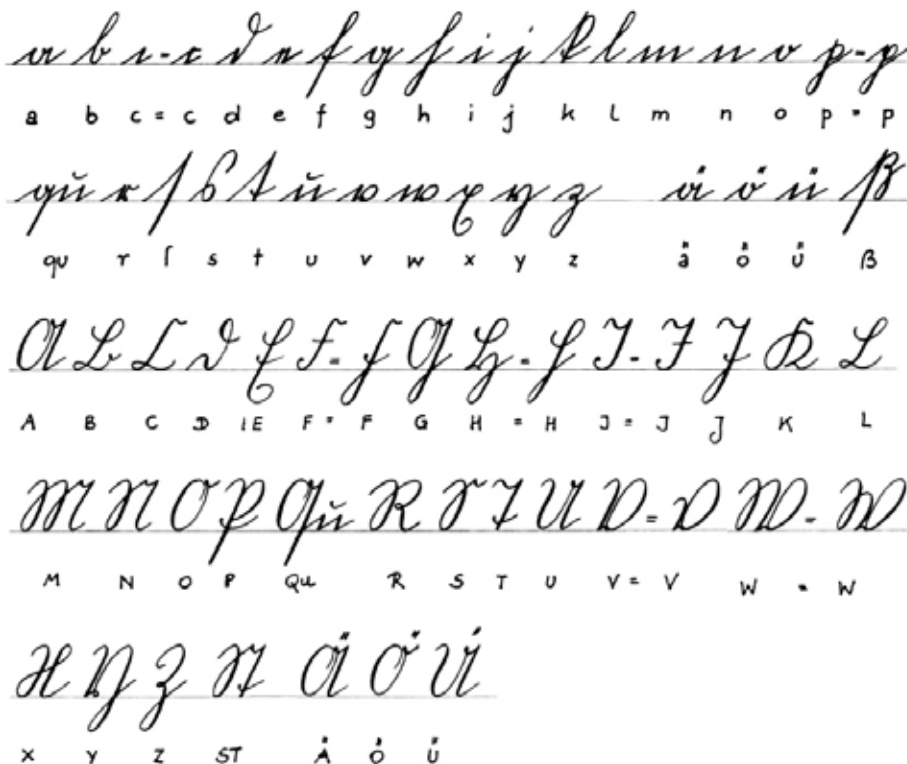 a b c - c d e f g h i j k l m n o p - p
a b c = c d e f g h i j k l m n o p = p
qu r ſ s t u v w x y z ä ö ü ß
qu r ſ s t u v w x y z ä ö ü ß
A B C D E F = F G H = H I - I J K L
A B C D E F = F G H = H J = J J K L
M N O P Qu R S T U V = V W - W
M N O P Qu R S T U V = V W = W
X Y Z St Ä Ö Ü
X Y Z ST Ä Ö Ü